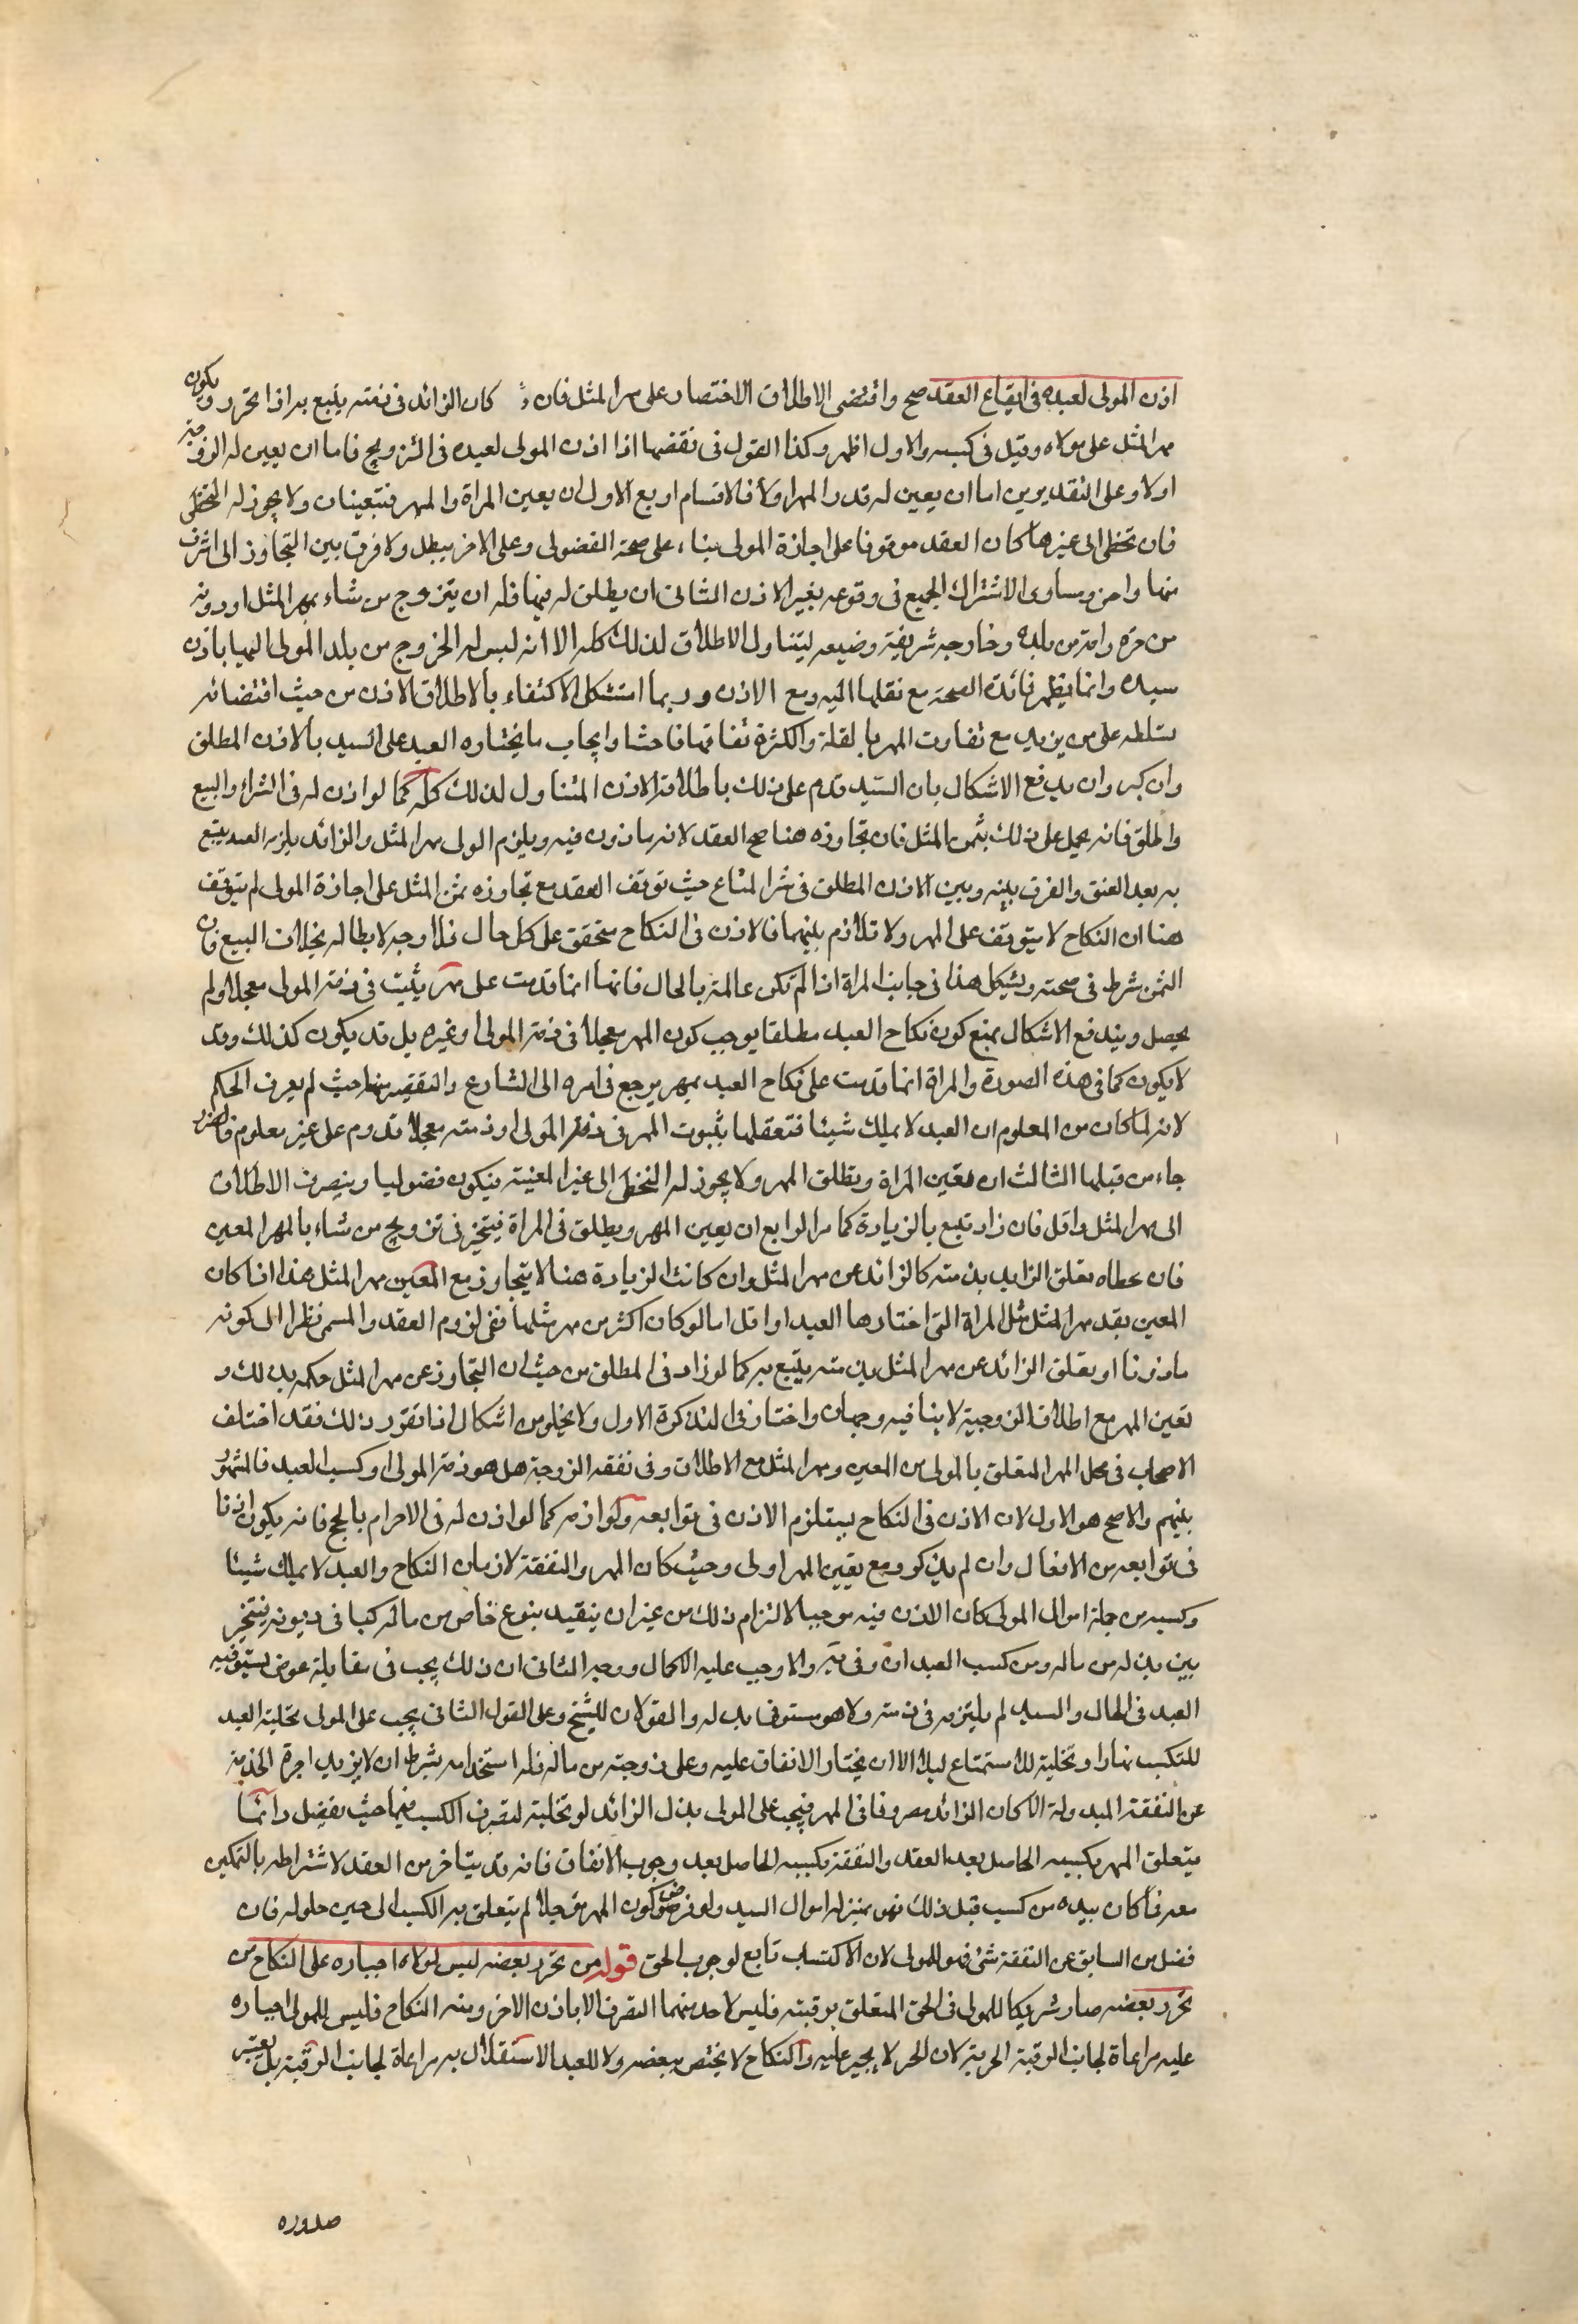 اذن المولى لعبده فى ايقاع العقد صح واقتضى الاطلاق الاختصار على مهر المثل فان كان الزائد فى ذمته يتبع به اذا تحرر ويكون
مهر المثل على مولاه وقيل فى كسبه والاول اظهر وكذا القول فى نفقتها اذا اذن المولى لعبده فى التزويج فاما ان يعين له الزوجة
اولا وعلى التقديرين اما ان يعين له قدر المهر اولا فالاقسام اربع الاول ان يعين المراة والمهر فتتعينان ولا يجوز له التخطى
فان تخطى الى غيرها كان العقد موقوفا على اجازة المولى بناء على صحة الفضولى وعلى الاخر يبطل ولا فرق بين التجاوز الى اشرف
منها واخس ومساوى لاشتراك الجميع فى وقوعه بغير الاذن الثانى ان يطلق له فيهما فله ان يتزوج من شاء بمهر المثل او دونه
من حرة وامة من بلده وخارجه شريفة وضيعه ليتناول الاطلاق لذلك كله الا انه ليس له الخروج من بلد المولى اليها باذن
سيده وانما يظهر فائدة الصحة مع نقلها اليه ومع الاذن وربما استشكل الاكتفاء بالاطلاق الاذن من حيث اقتضائه
تسلطه على من يريد مع تفاوت المهر بالقلة والكثرة تفاوتا فاحشا وايجاب ما يختاره العبد على السيد بالاذن المطلق
وان كبر وان يدفع الاشكال بان السيد قدم على ذلك باطلاقه الاذن المتناول لذلك كله كما لو اذن له فى الشراء والبيع
واطلق فانه يحمل على ذلك بثمن المثل فان تجاوزه هنا صح العقد لانه ماذون فيه ويلزم المولى مهر المثل والزائد يلزم العبد يتبع
به بعد العتق والفرق بينه وبين الاذن المطلق فى شراء المتاع حيث توقف العقد مع تجاوزه ثمن المثل على اجازة المولى لم يتوقف
هنا ان النكاح لا يتوقف على المهر ولا تلازم بينهما فالاذن فى النكاح متحقق على كل حال فلا وجه لابطاله بخلاف البيع فان
الثمن شرط فى صحته ويشكل هذا فى جانب المراة اذا لم تكن عالمة بالحال فانها انما قدمت على مهر يثبت فى ذمة المولى معجلا ولم
يحصل ويندفع الاشكال بمنع كون نكاح العبد مطلقا يوجب كون المهر معجلا فى ذمة المولى او غيره بل قد يكون كذلك وقد
لا يكون كما فى هذه الصورة والمراة انما قدمت على نكاح العبد بمهر يرجع فى امره الى الشارع والتقصير منها حيث لم يعرف الحكم
لانه لما كان من المعلوم ان العبد لا يملك شيئا فتعقلها بثبوت المهر فى ذمة المولى او ذمته معجلا قدوم على غير معلوم فالضرر
جاء من قبلها الثالث ان يعين المراة ويطلق المهر ولا يجوز له التخطى الى غير المعينة فيكون فضوليا وينصرف الاطلاق
الى مهر المثل واقل فان زاد تبع بالزيادة كما مر الرابع ان يعين المهر ويطلق فى المراة فيتخير فى تزويج من شاء بالمهر المعين
فان تخطاه تعلق الزايد بذمته كالزائد عن مهر المثل وان كانت الزيادة هنا لا يتجاوز مع المعين مهر المثل هذا اذا كان
المعين بقدر مهر المثل مثل المراة التى اختارها العبد او اقل اما لو كان اكثر من مهر مثلها ففى لزوم العقد والمسمى نظرا الى كونه
ماذونا او تعلق الزائد عن مهر المثل بذمته يتبع به كما لو زاد فى المطلق من حيث ان التجاوز عن مهر المثل حكمه بذلك و
تعين المهر مع اطلاق الزوجية لا ينافيه وجهان واختار فى التذكرة الاول ولا يخلو من اشكال اذا تقرر ذلك فقد اختلف
الاصحاب فى محل المهر المتعلق بالمولى من المعين ومهر المثل مع الاطلاق وفى نفقة الزوجة هل هو ذمة المولى او كسب العبد فالمشهور
بينهم والاصح هو الاول لان الاذن فى النكاح يستلزم الاذن فى توابعه ولوازمه كما لو اذن له فى الاحرام بالحج فانه يكون اذنا
فى توابعه من الافعال وان لم يذكر ومع تعيين المهر اولى وحيث كان المهر والنفقة لازمان النكاح والعبد لا يملك شيئا
وكسبه من جملة اموال المولى كان الاذن فيه موجبا لالتزام ذلك من غير ان يتقيد بنوع خاص من ماله كباقى ديونه فيتخير
بين بذله من ماله ومن كسب العبد ان وفى به والا وجب عليه الاكمال ووجه الثانى ان ذلك يجب فى مقابلة عوض يستوفيه
العبد فى الحال والسيد لم يلتزمه فى ذمته ولا هو مستوف بدله والقولان للشيخ وعلى القول الثانى يجب على المولى تخلية العبد
للتكسب نهارا وتخلية للاستمتاع ليلا الا ان يختار الانفاق عليه وعلى زوجته من ماله فله استخدامه بشرط ان لا يزيد اجرة الخدمة
عن النفقة المبذولة الا كان الزائد مصروفا فى المهر فيجب على المولى بذل الزائد لو تخلية لتصرف الكسب فيهما حيث يفضل وانما
يتعلق المهر بكسبه الحاصل بعد العقد والنفقة بكسبه الحاصل بعد وجوب الانفاق فانه قد يتاخر من العقد لاشتراطه بالتمكين
معه فما كان بيده من كسب قبل ذلك فهو بمنزلة اموال السيد ولو فرض كون المهر مؤجلا لم يتعلق به الكسب الى حين حلوله فان
فضل من السابق عن النفقة شئ فهو للمولى لان الاكتساب تابع لوجوب الحق قوله من تحرر بعضه ليس لمولاه اجباره على النكاح من
تحرر بعضه صار شريكا للمولى فى الحق المتعلق برقبته فليس لاحد منهما التصرف الا باذن الاخر ومنه النكاح فليس للمولى اجباره
عليه مراعاة لجانب الرقبة الحرية لان الحر لا يجبر عليه والنكاح لا يختص ببعضه ولا للعبد الاستقلال به مراعاة لجانب الرقية بل يعتبر
صدوره